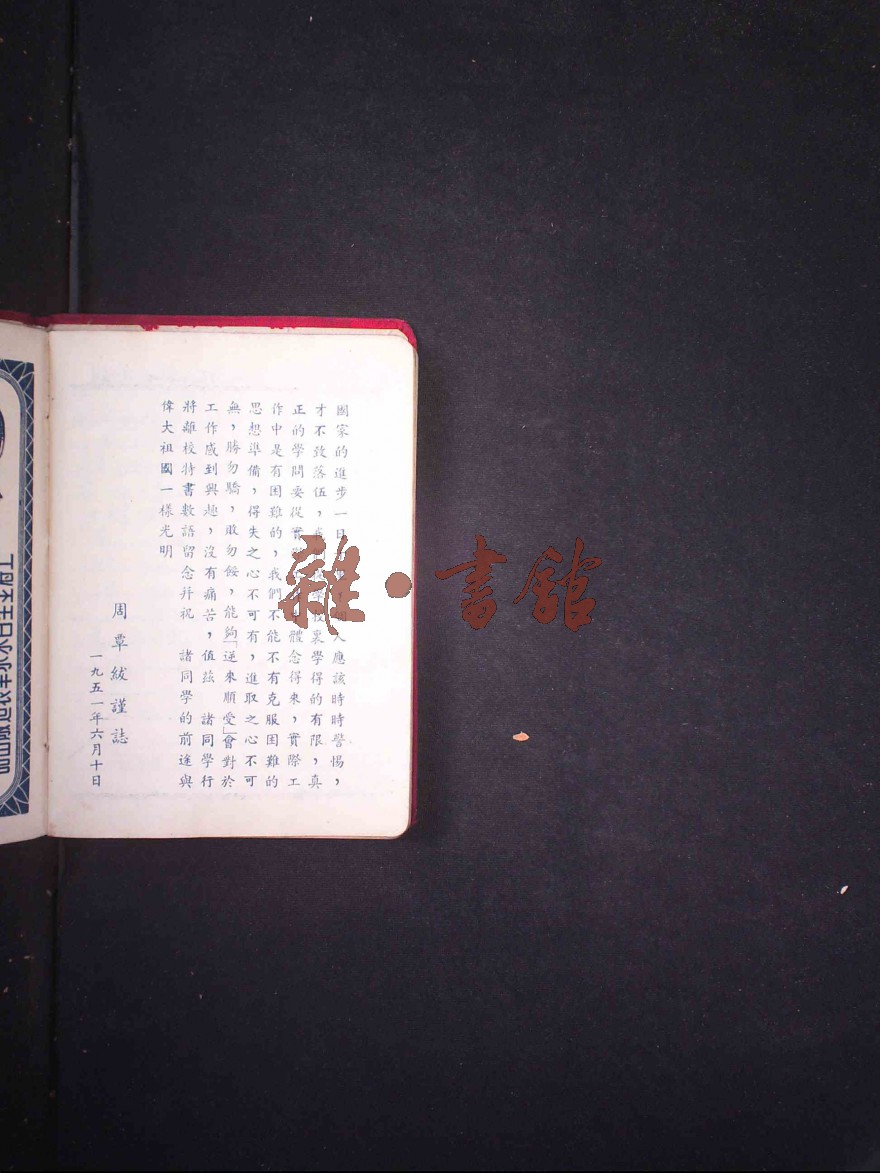 國家的進步一日人應該時時警惕，
才不致落伍，我校裏學得的有限，真
正的學問要從實體念得來，實際工
作中是有困難的，我們不能不有克服困難的
思想準備，得失之心不可有，進取之心不可
無，勝勿驕，敗勿餒，能夠「逆來順受」會對於
工作感到興趣，沒有痛苦，值茲　諸同學行
將離校特書數語留念并祝　諸同學的前途與
偉大祖國一樣光明
周覃紱謹誌
一九五一年六月十日
雜·書館